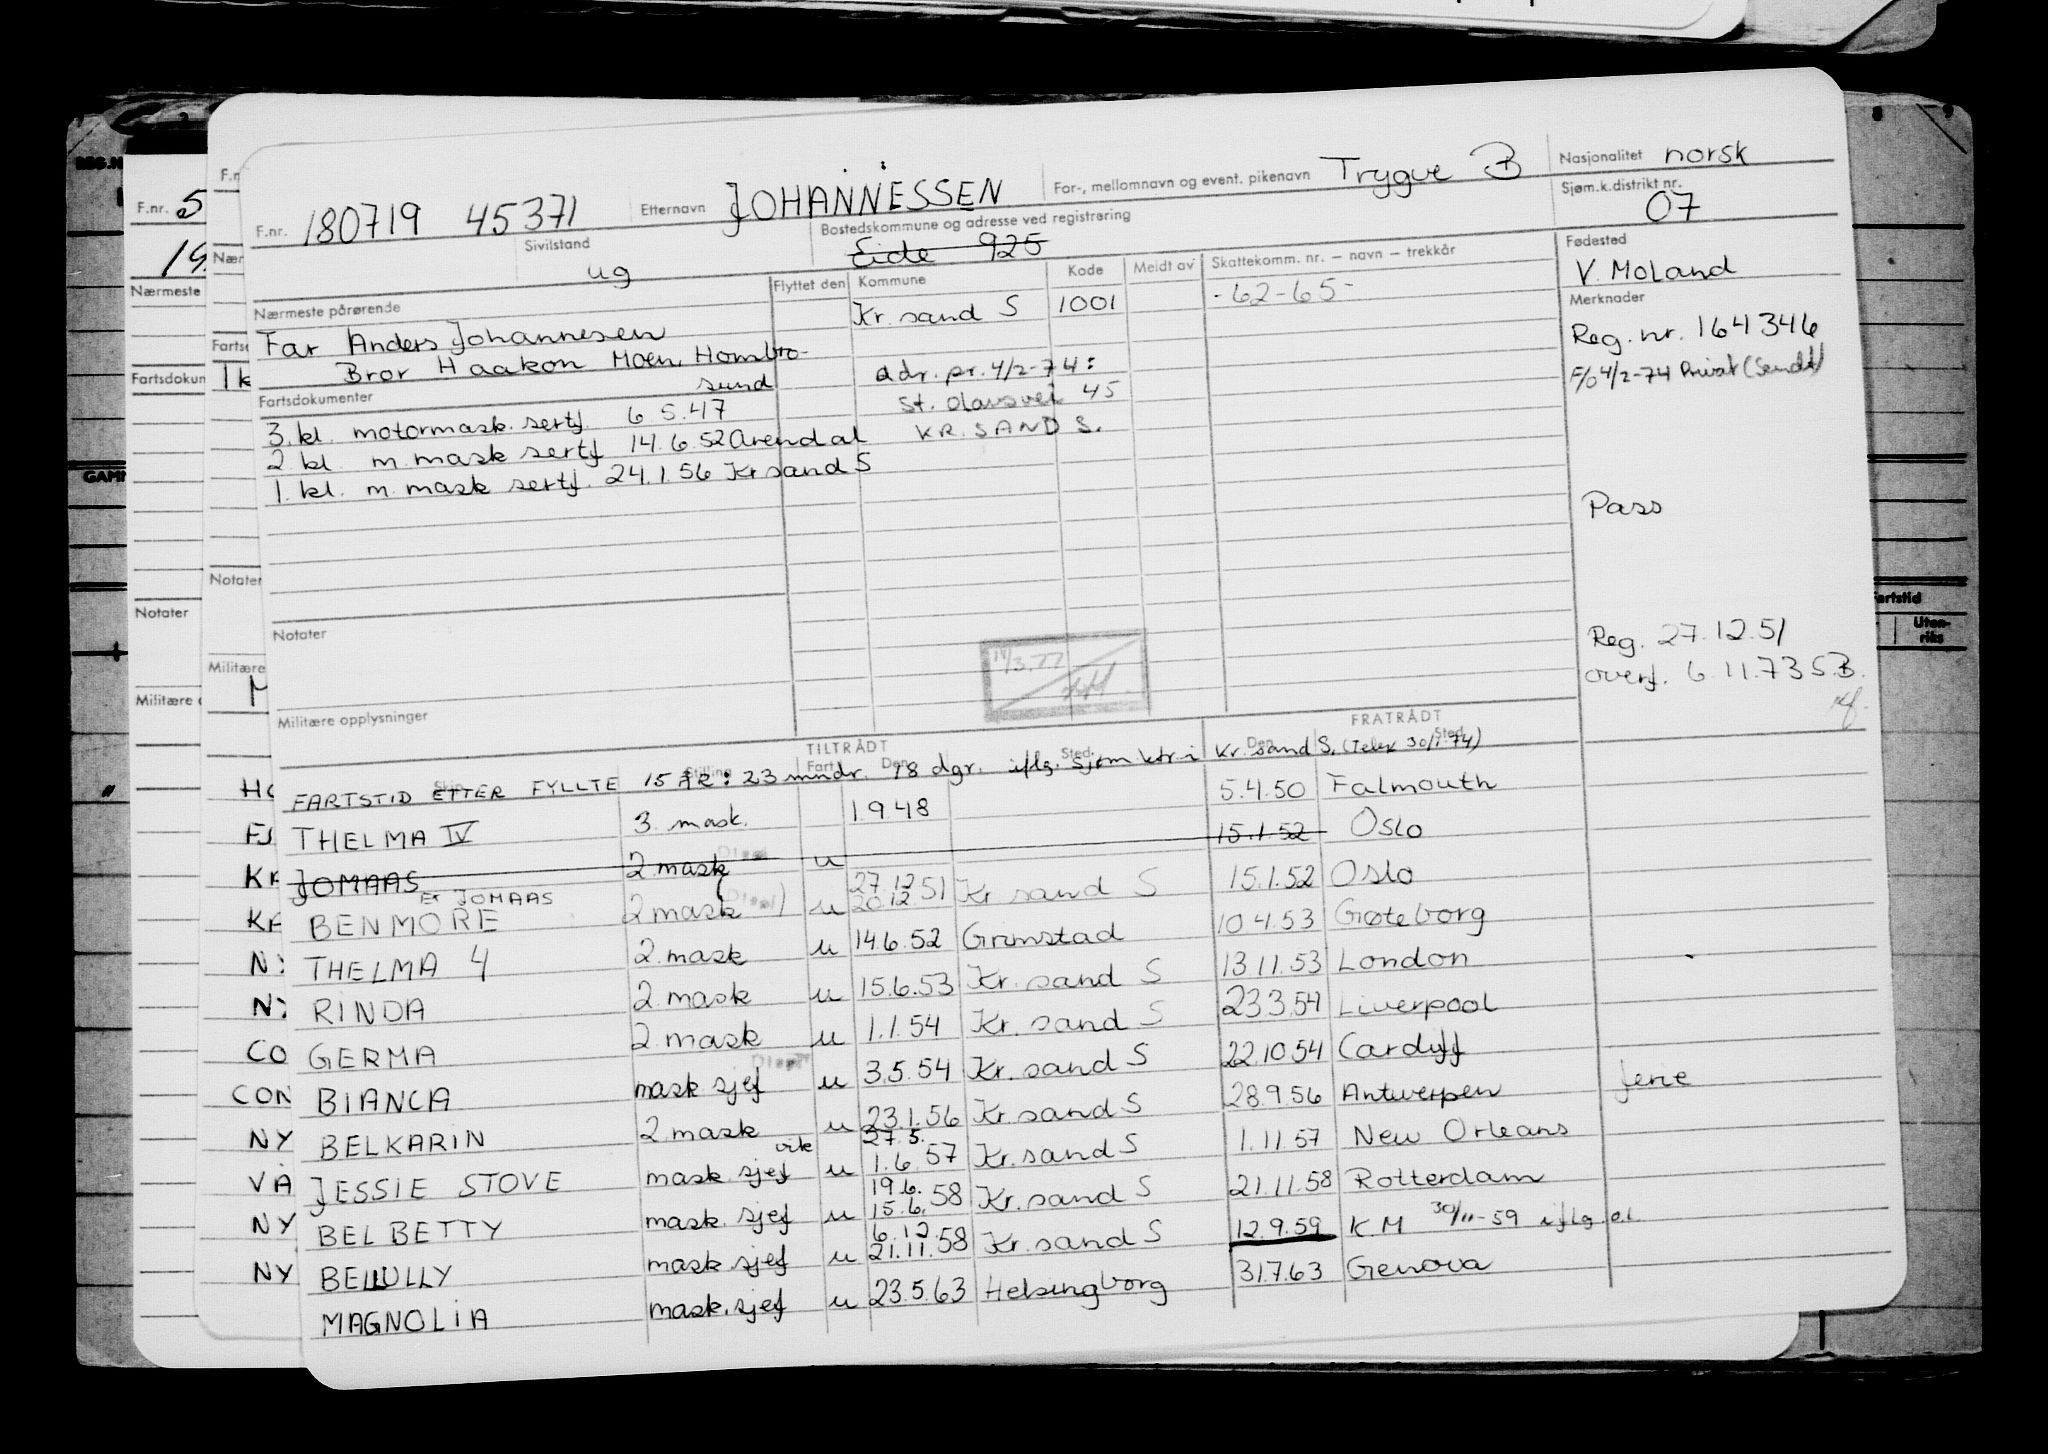 F.nr. 180719 45371 Etternavn JOHANNESSEN For-, mellomnavn og event. pikenavn Trygve B Nasjonalitet norsk
Sivilstand ug Bostedskommune og adresse ved registrering Eide 925 Sjøm.k.distrikt nr. 07
Nærmeste pårørende Flyttet den Kommune Kode Meldt av Skattekomm. nr. – navn – trekkår Fødested
V. Moland
Far Anders Johannesen Kr. sand S 1001 -62-65- Merknader
Bror Haakon Moen, Hombor-
sund
Reg. nr. 164346
F/o 4/2-74 Privat (Sendt)
adr. pr. 4/2-74:
St. Olavsvei 45
KR. SAND S.
Fartsdokumenter
3. kl. motormask. sertf. 6 5.47
2 kl. m. mask sertf 14.6 52 Arendal
1. kl. m. mask sertf. 24.1.56 Kr sand S
Pass
Notater
Reg. 27.12.51
overf. 6.11.73 S.B.
14/3.77
Militære opplysninger
TILTRÅDT FRATRÅDT
Skip Stilling Fart Den Sted Den Sted
FARTSTID ETTER FYLLTE 15 ÅR: 23 mndr. 18 dgr. iflg. Sjøm ktr i Kr. sand S. (Telex 30/1-74)
THELMA IV 3 mask. 1948 5.4.50 Falmouth
JOMAAS 2 mask u 15.1.52 Oslo
BENMORE Ex JOMAAS 2 mask u 27.12 20.12.51 Kr sand S 15.1.52 Oslo
THELMA 4 2 mask u 14.6.52 Grimstad 10.4.53 Gøteborg
RINDA 2 mask u 15.6.53 Kr. sand S 13.11.53 London
GERMA 2 mask u 1.1.54 Kr. sand S 23.3.54 Liverpool
BIANCA mask sjef u 3.5.54 Kr. sand S 22.10.54 Cardiff
BELKARIN 2 mask u 23.1.56 Kr sand S 28.9.56 Antwerpen
JESSIE STOVE mask. sjef vik u 27.5. 1.6.57 Kr. sand S 1.11.57 New Orleans
BELBETTY mask. sjef u 19.6. 15.6.58 Kr. sand S 21.11.58 Rotterdam
BELLULLY mask sjef u 6.12. 21.11.58 Kr. sand S 12.9.59 K.M 30/11-59 iflg.
MAGNOLIA mask. sjef u 23.5.63 Helsingborg 31.7.63 Genova